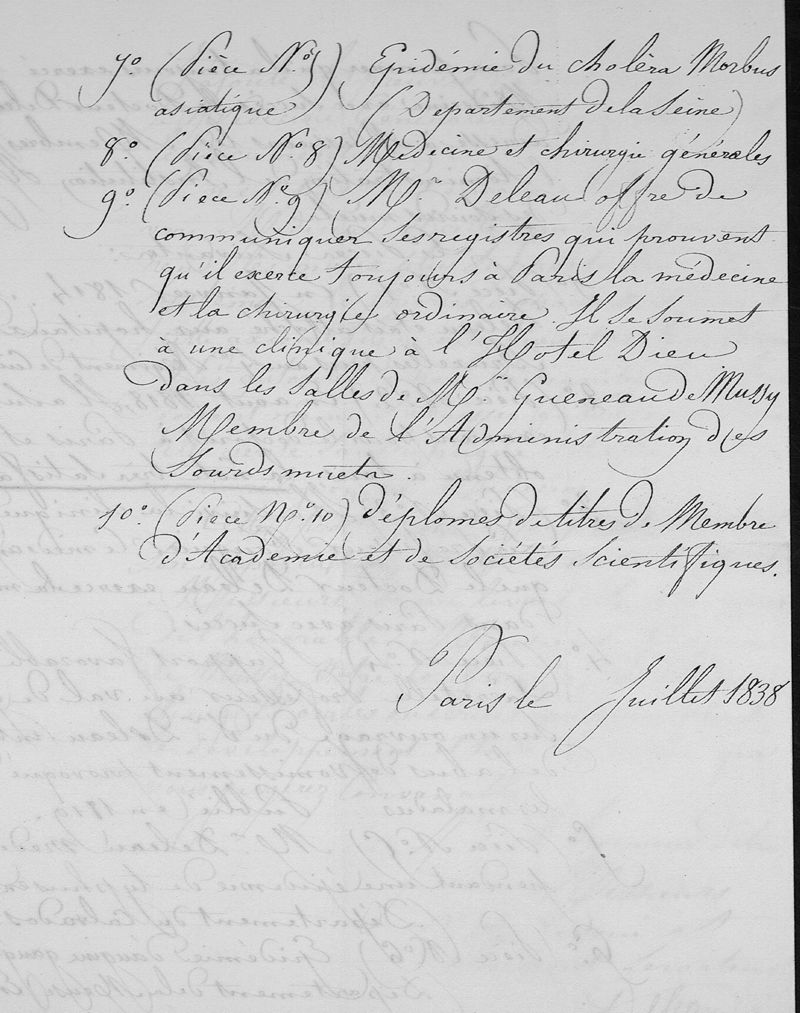 7.° (Pièce N.° 7) Epidémie du choléra Morbus
asiatique (Departement de la Seine)
8.° (Pièce N.° 8) Médecine et chirurgie générales
9.° (Pièce N.° 9) M.r Deleau offre de
communiquer ses registres qui prouvent
qu'il exerce toujours à Paris la médecine
et la chirurgie ordinaire. Il se soumet
à une clinique à l'Hotel Dieu
dans les salles de M.r Gueneau de Mussy
Membre de l'Administration des
Sourds muets.
10.° (Pièce N.° 10) diplomes de titres de Membre
d'Academie et de Sociétés Scientifiques.
Paris le Juillet 1838